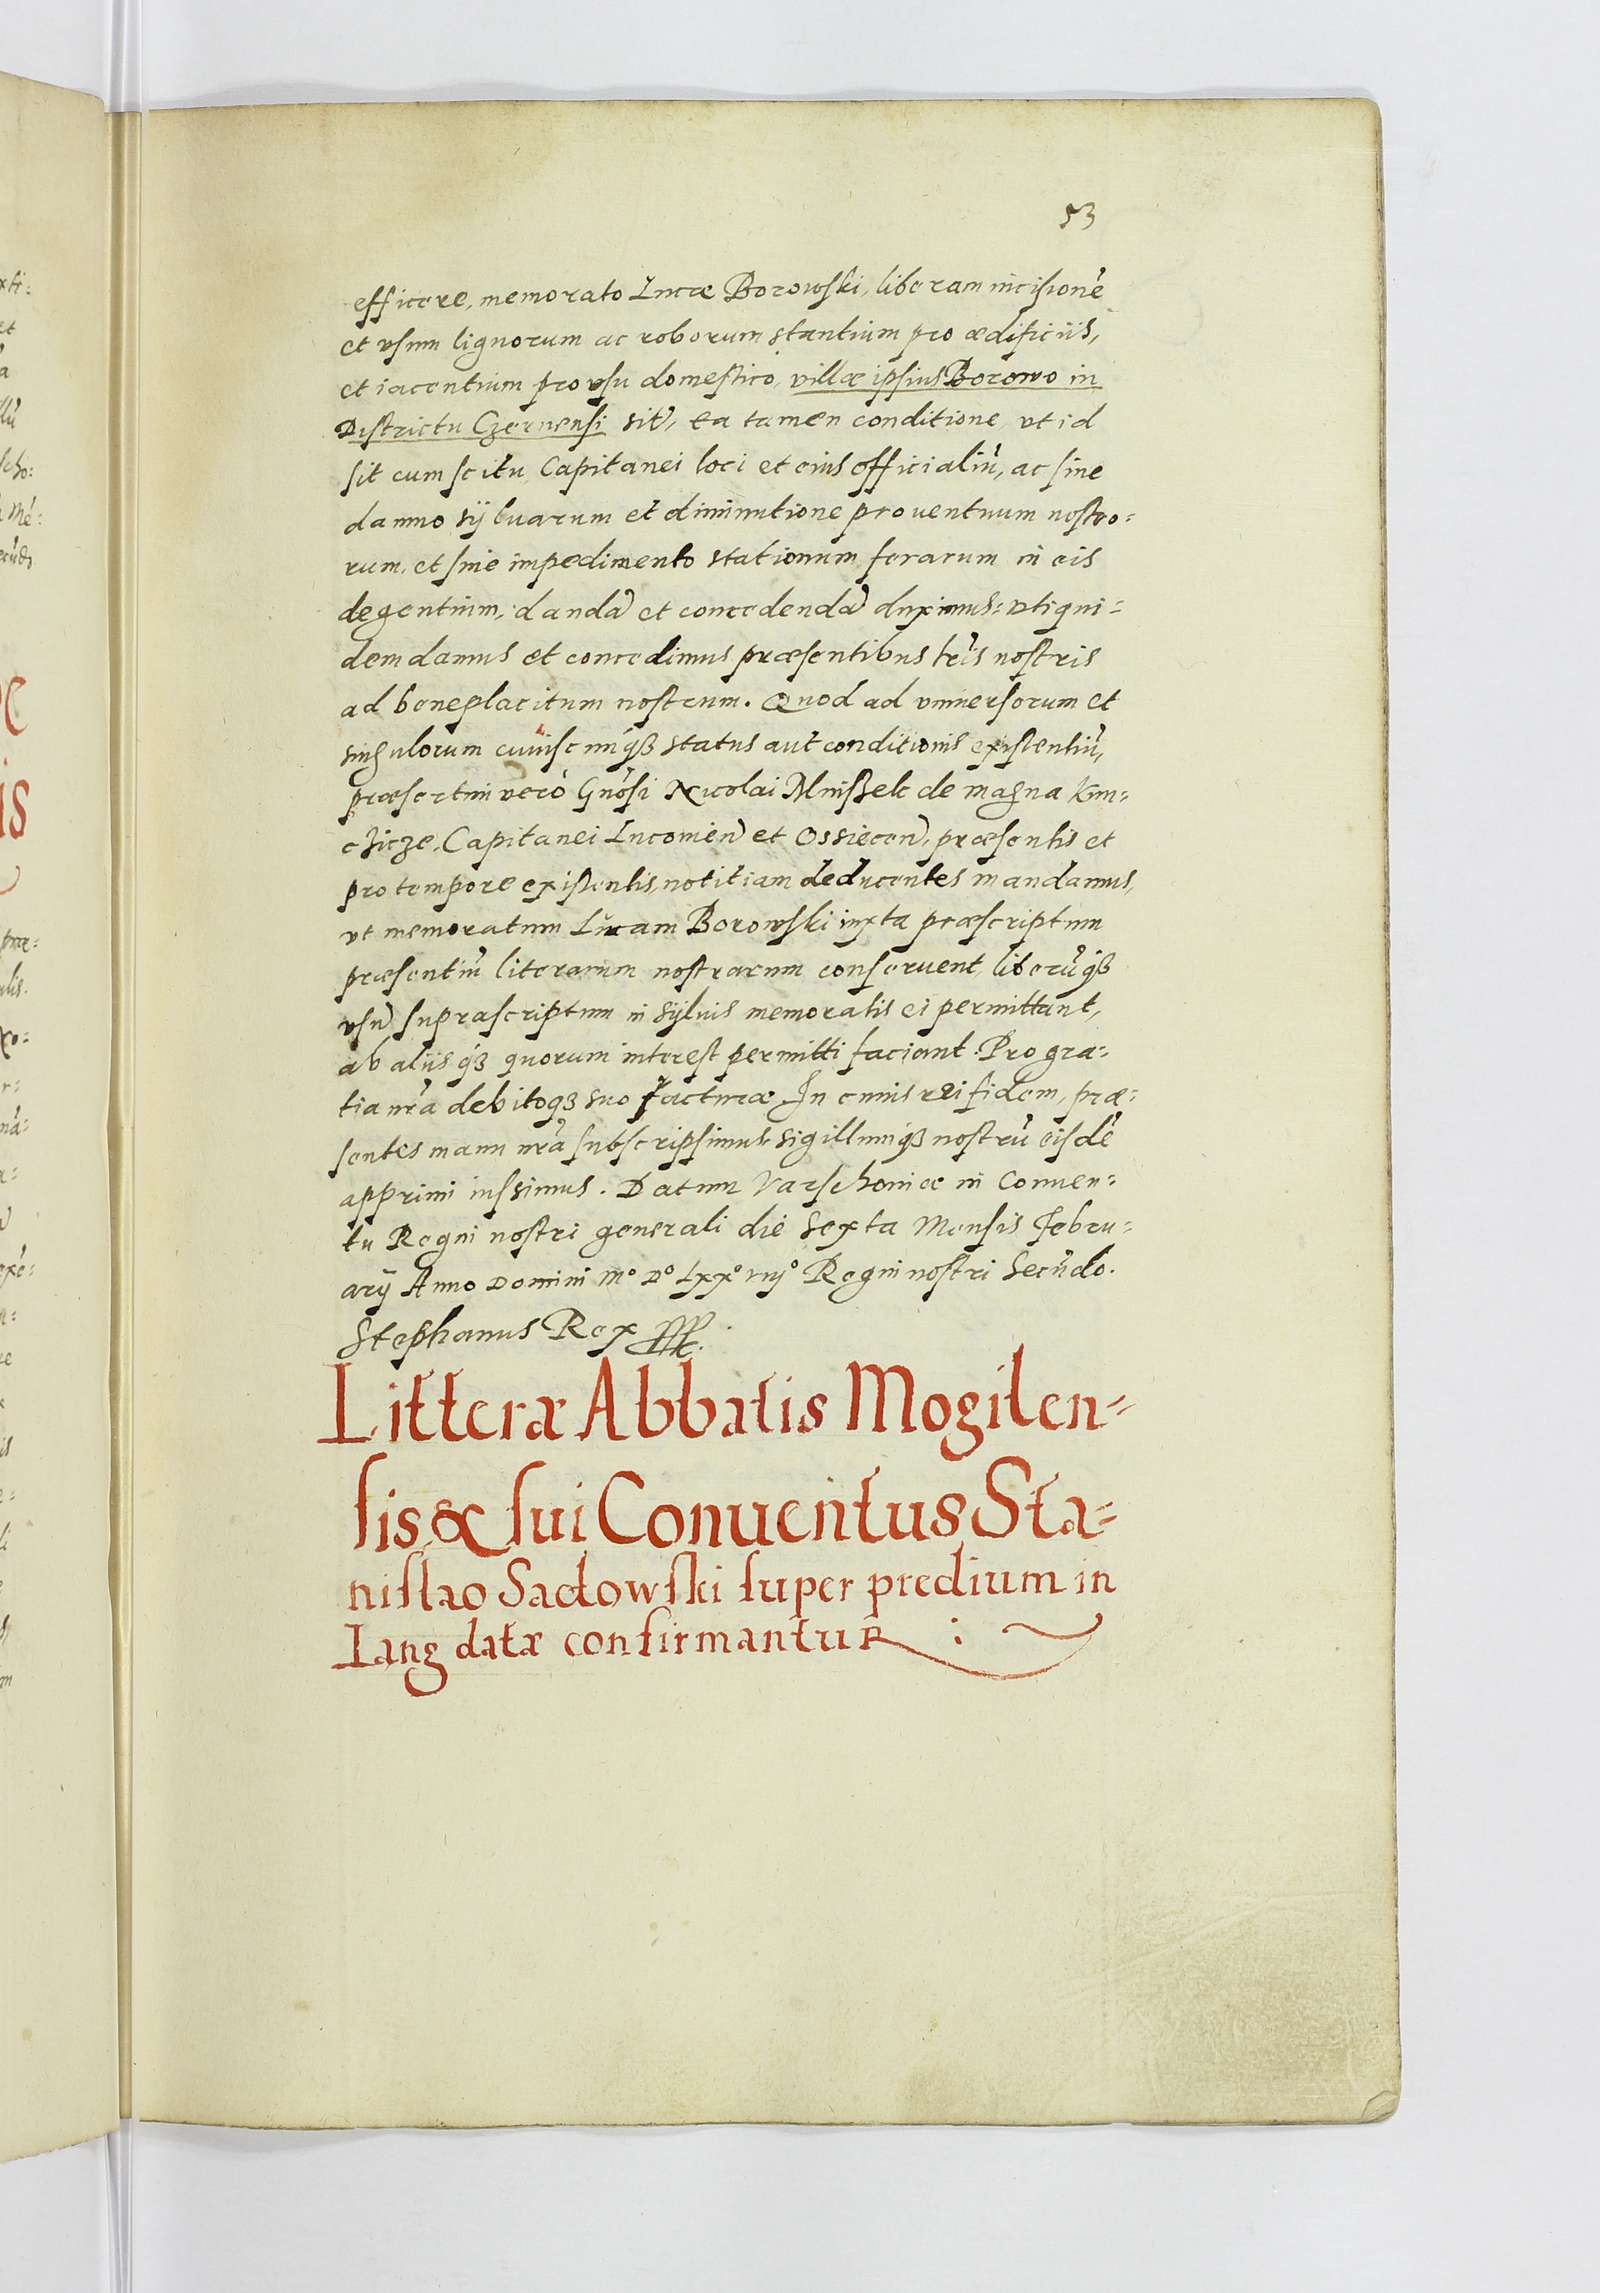 53
efficere, memorato Lucæ Borowski, liberam incisionẽ
et vsum lignorum ac roborum stantium pro ædificiis,
et iacentium pro vsu domestico, villæ ipsius Borowo in
Districtu Czernensi sit̃, ea tamen conditione, vt id
sit cum scitu Capitanei loci et eius officialiũ, ac sine
damno syluarum et diminutione prouentuum nostro=
rum, et sine impedimento stationum ferarum in eis
degentium, dandã et concedendã duximus: vtiqui=
dem damus et concedimus præsentibus lr̃is nostris
ad beneplacitum nostrum. Quod ad vniuersorum et
singulorum cuiuscunqꝫ status aut conditionis existentiũ,
præsertim verò Gñosi Nicolai Mnißek de magna Kun=
chicze, Capitanei Lucouieñ et Ossieceñ, præsentis et
pro tempore existentis, notitiam deducentes mandamus,
vt memoratum Lucam Borowski iuxta præscriptum
præsentiũ literarum nostrarum conseruent, liberũqꝫ
vsũ suprascriptum in syluis memoratis ei permittant,
ab aliisqꝫ quorum interest permitti faciant. Pro gra=
tia nr̃a debitoqꝫ suo facturæ. In cuius rei fidem, præ=
sentes manu nr̃a subscripsimus sigillumqꝫ nostrũ eisdẽ
apprimi iussimus. Datum Varschouiæ in Conuen=
tu Regni nostri generali die Sexta Mensis Febru=
arij Anno Domini Mº Dº Lxxº viijº Regni nostri Secũdo.
Stephanus Rex
Litteræ Abbatis Mogilen=
sis & sui Conuentus Sta=
nislao Sadowski super predium in
Lang datæ confirmantur